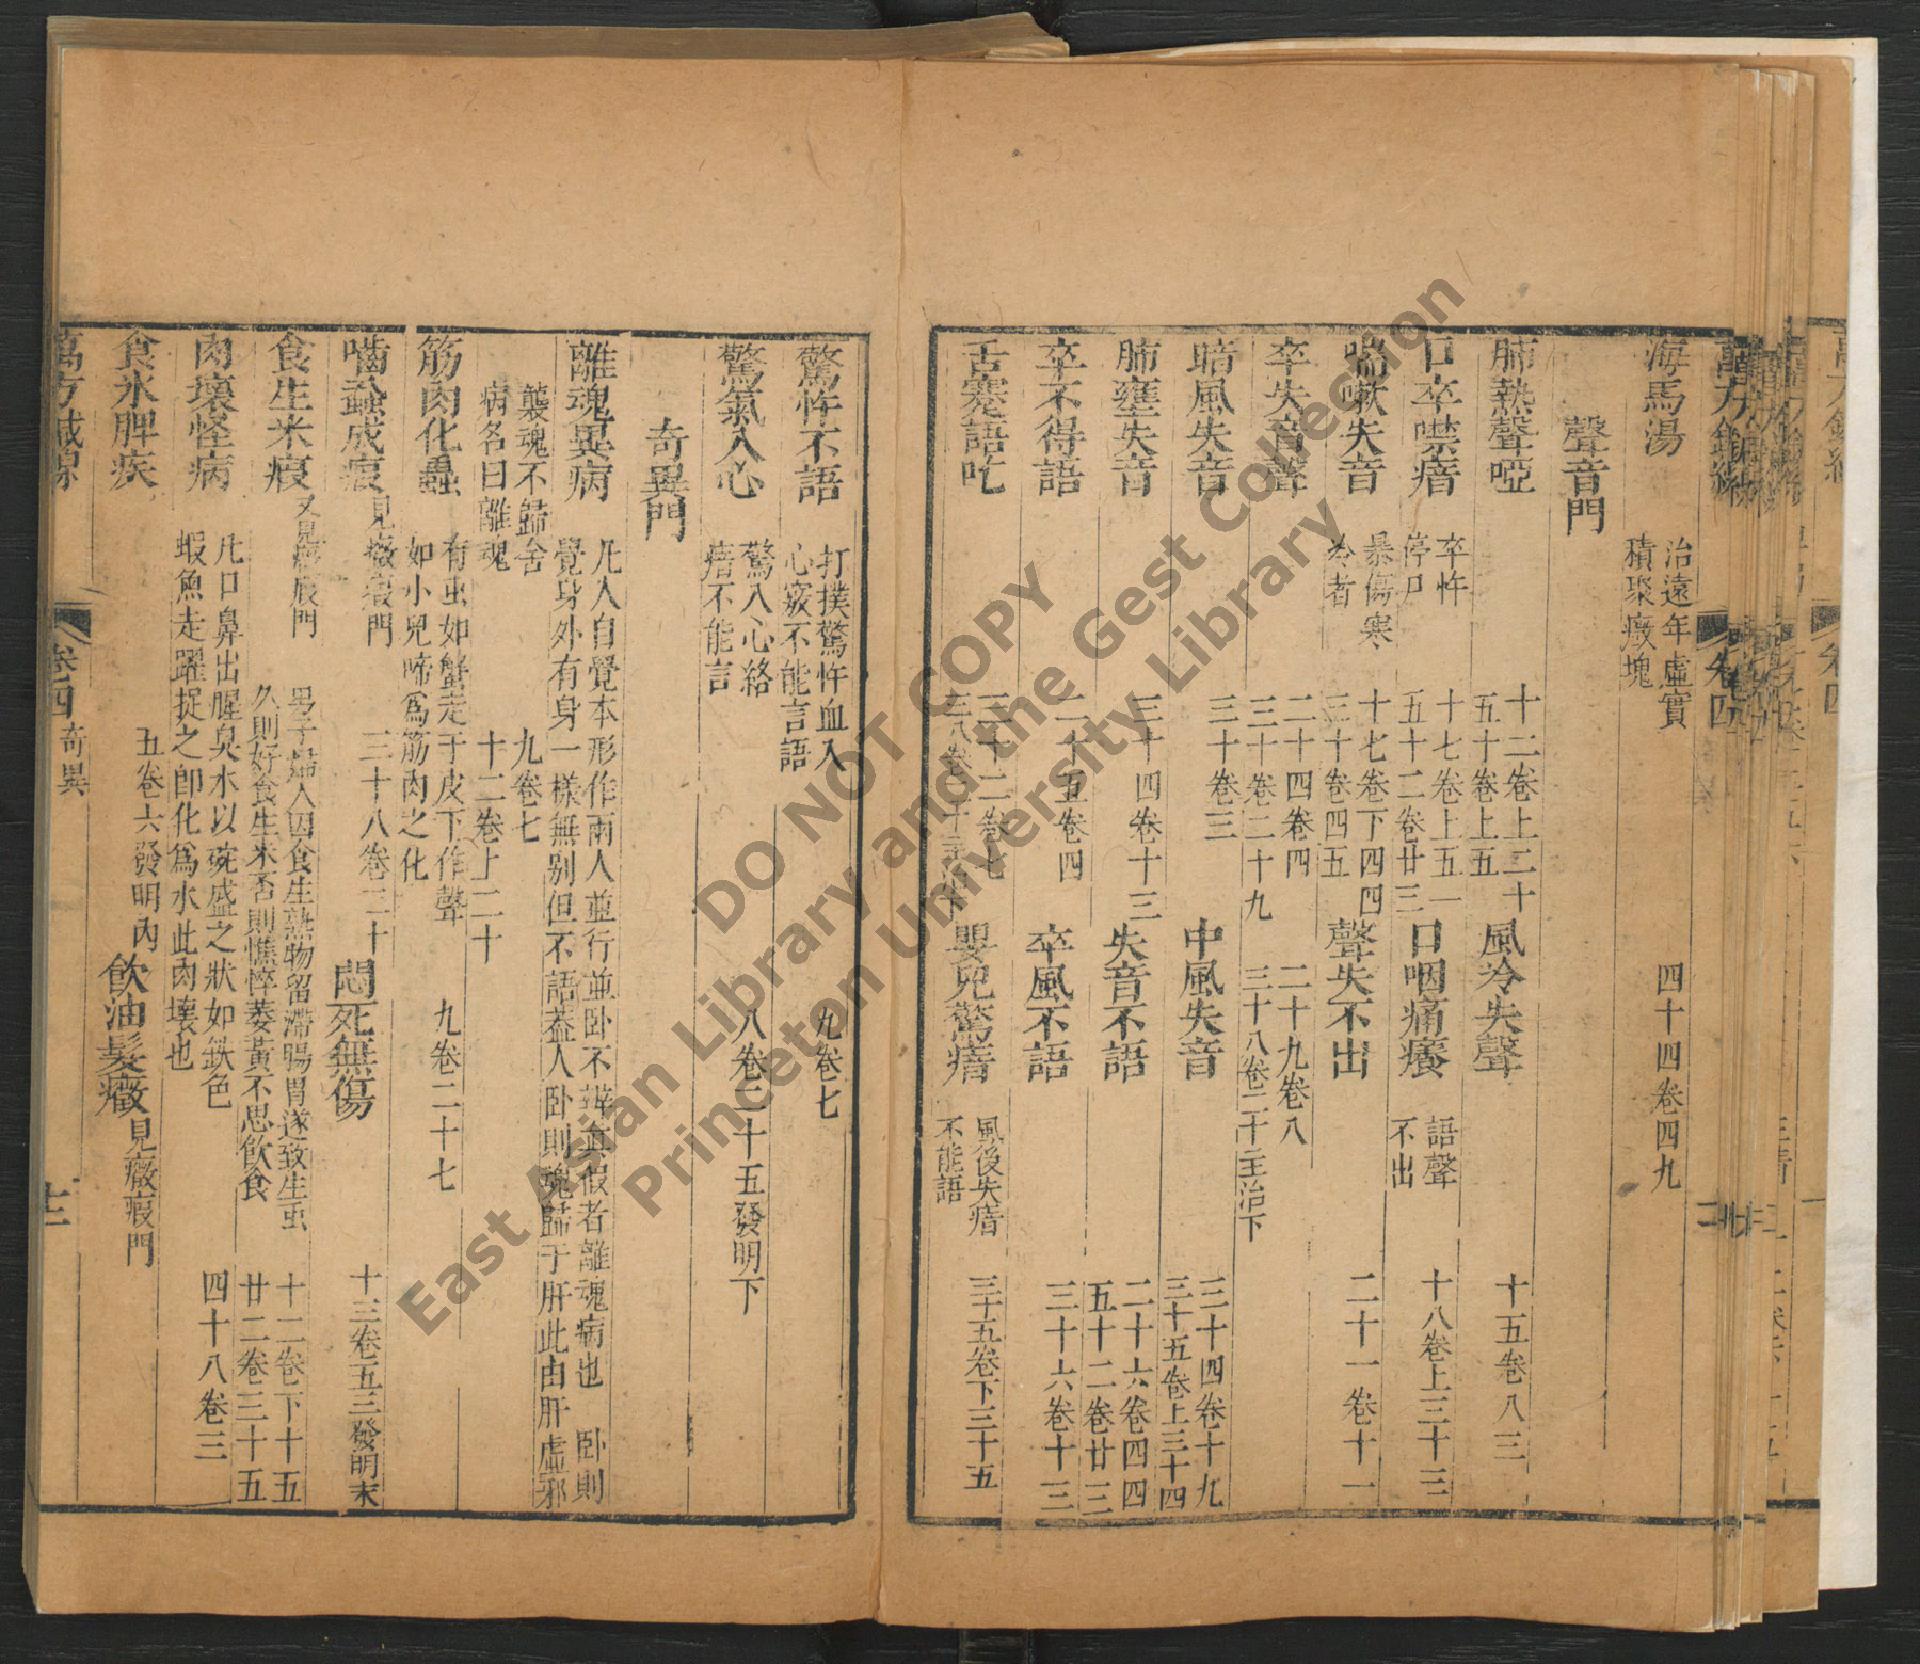 海馬湯 治遠年虛實積聚癥塊 四十四卷四九
聲音門
肺熱聲啞 十二卷上二十 五十卷上五 風冷失聲 十五卷八三
口卒噤瘖 卒忤停尸 十七卷上五一 五十二卷廿三 口咽痛癢 語聲不出 十八卷上三十三
喘嗽失音 暴傷寒冷者 十七卷下四四 三十卷四五 聲失不出 二十一卷十一
卒失音聲 二十四卷四 三十卷二十九 二十九卷八 三十八卷二十主治下
暗風失音 三十卷三 中風失音 三十四卷十九 三十五卷上三十四
肺壅失音 三十四卷十三 失音不語 二十六卷四四 五十二卷廿三
卒不得語 二十五卷四 卒風不語 三十六卷十三
舌蹇語吃 三十二卷七 嬰兒驚瘖 風後失瘖不能語 三十五卷下三十五
驚忤不語 打撲驚忤血入心竅不能言語 九卷七
驚氣入心 驚入心絡瘖不能言 八卷三十五發明下
奇異門
離魂異病 凡人自覺本形作兩人並行並卧不辨真假者離魂病也 卧則覺身外有身一樣無別但不語蓋人卧則魂歸于肝此由肝虛邪
襲魂不歸舍病名曰離魂 九卷七 十二卷上二十
筋肉化蟲 有虫如蟹走于皮下作聲如小兒啼爲筋肉之化 九卷二十七
嚙蝨成瘕 見癥瘕門 三十八卷三十 悶死無傷 十三卷五三發明末
食生米瘕 又見癥瘕門 男子婦人因食生熟物留滯腸胃遂致生虫久則好食生米否則憔悴萎黃不思飲食 十二卷下十五 廿二卷三十五
肉壞怪病 凡口鼻出腥臭水以碗盛之狀如鉄色蝦魚走躍捉之即化爲水此肉壞也 四十八卷三
食氷脾疾 五卷六發明內 飲油髮癥 見癥瘕門
萬方鍼線 卷四 奇異